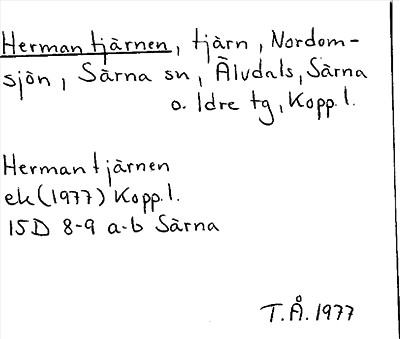 Hermantjärnen, tjärn, Nordom-
sjön, Särna sn, Älvdals, Särna
o. Idre tg, Kopp.l.
Hermantjärnen
ek (1977) Kopp.l.
15D 8-9 a-b Särna
T.Å. 1977